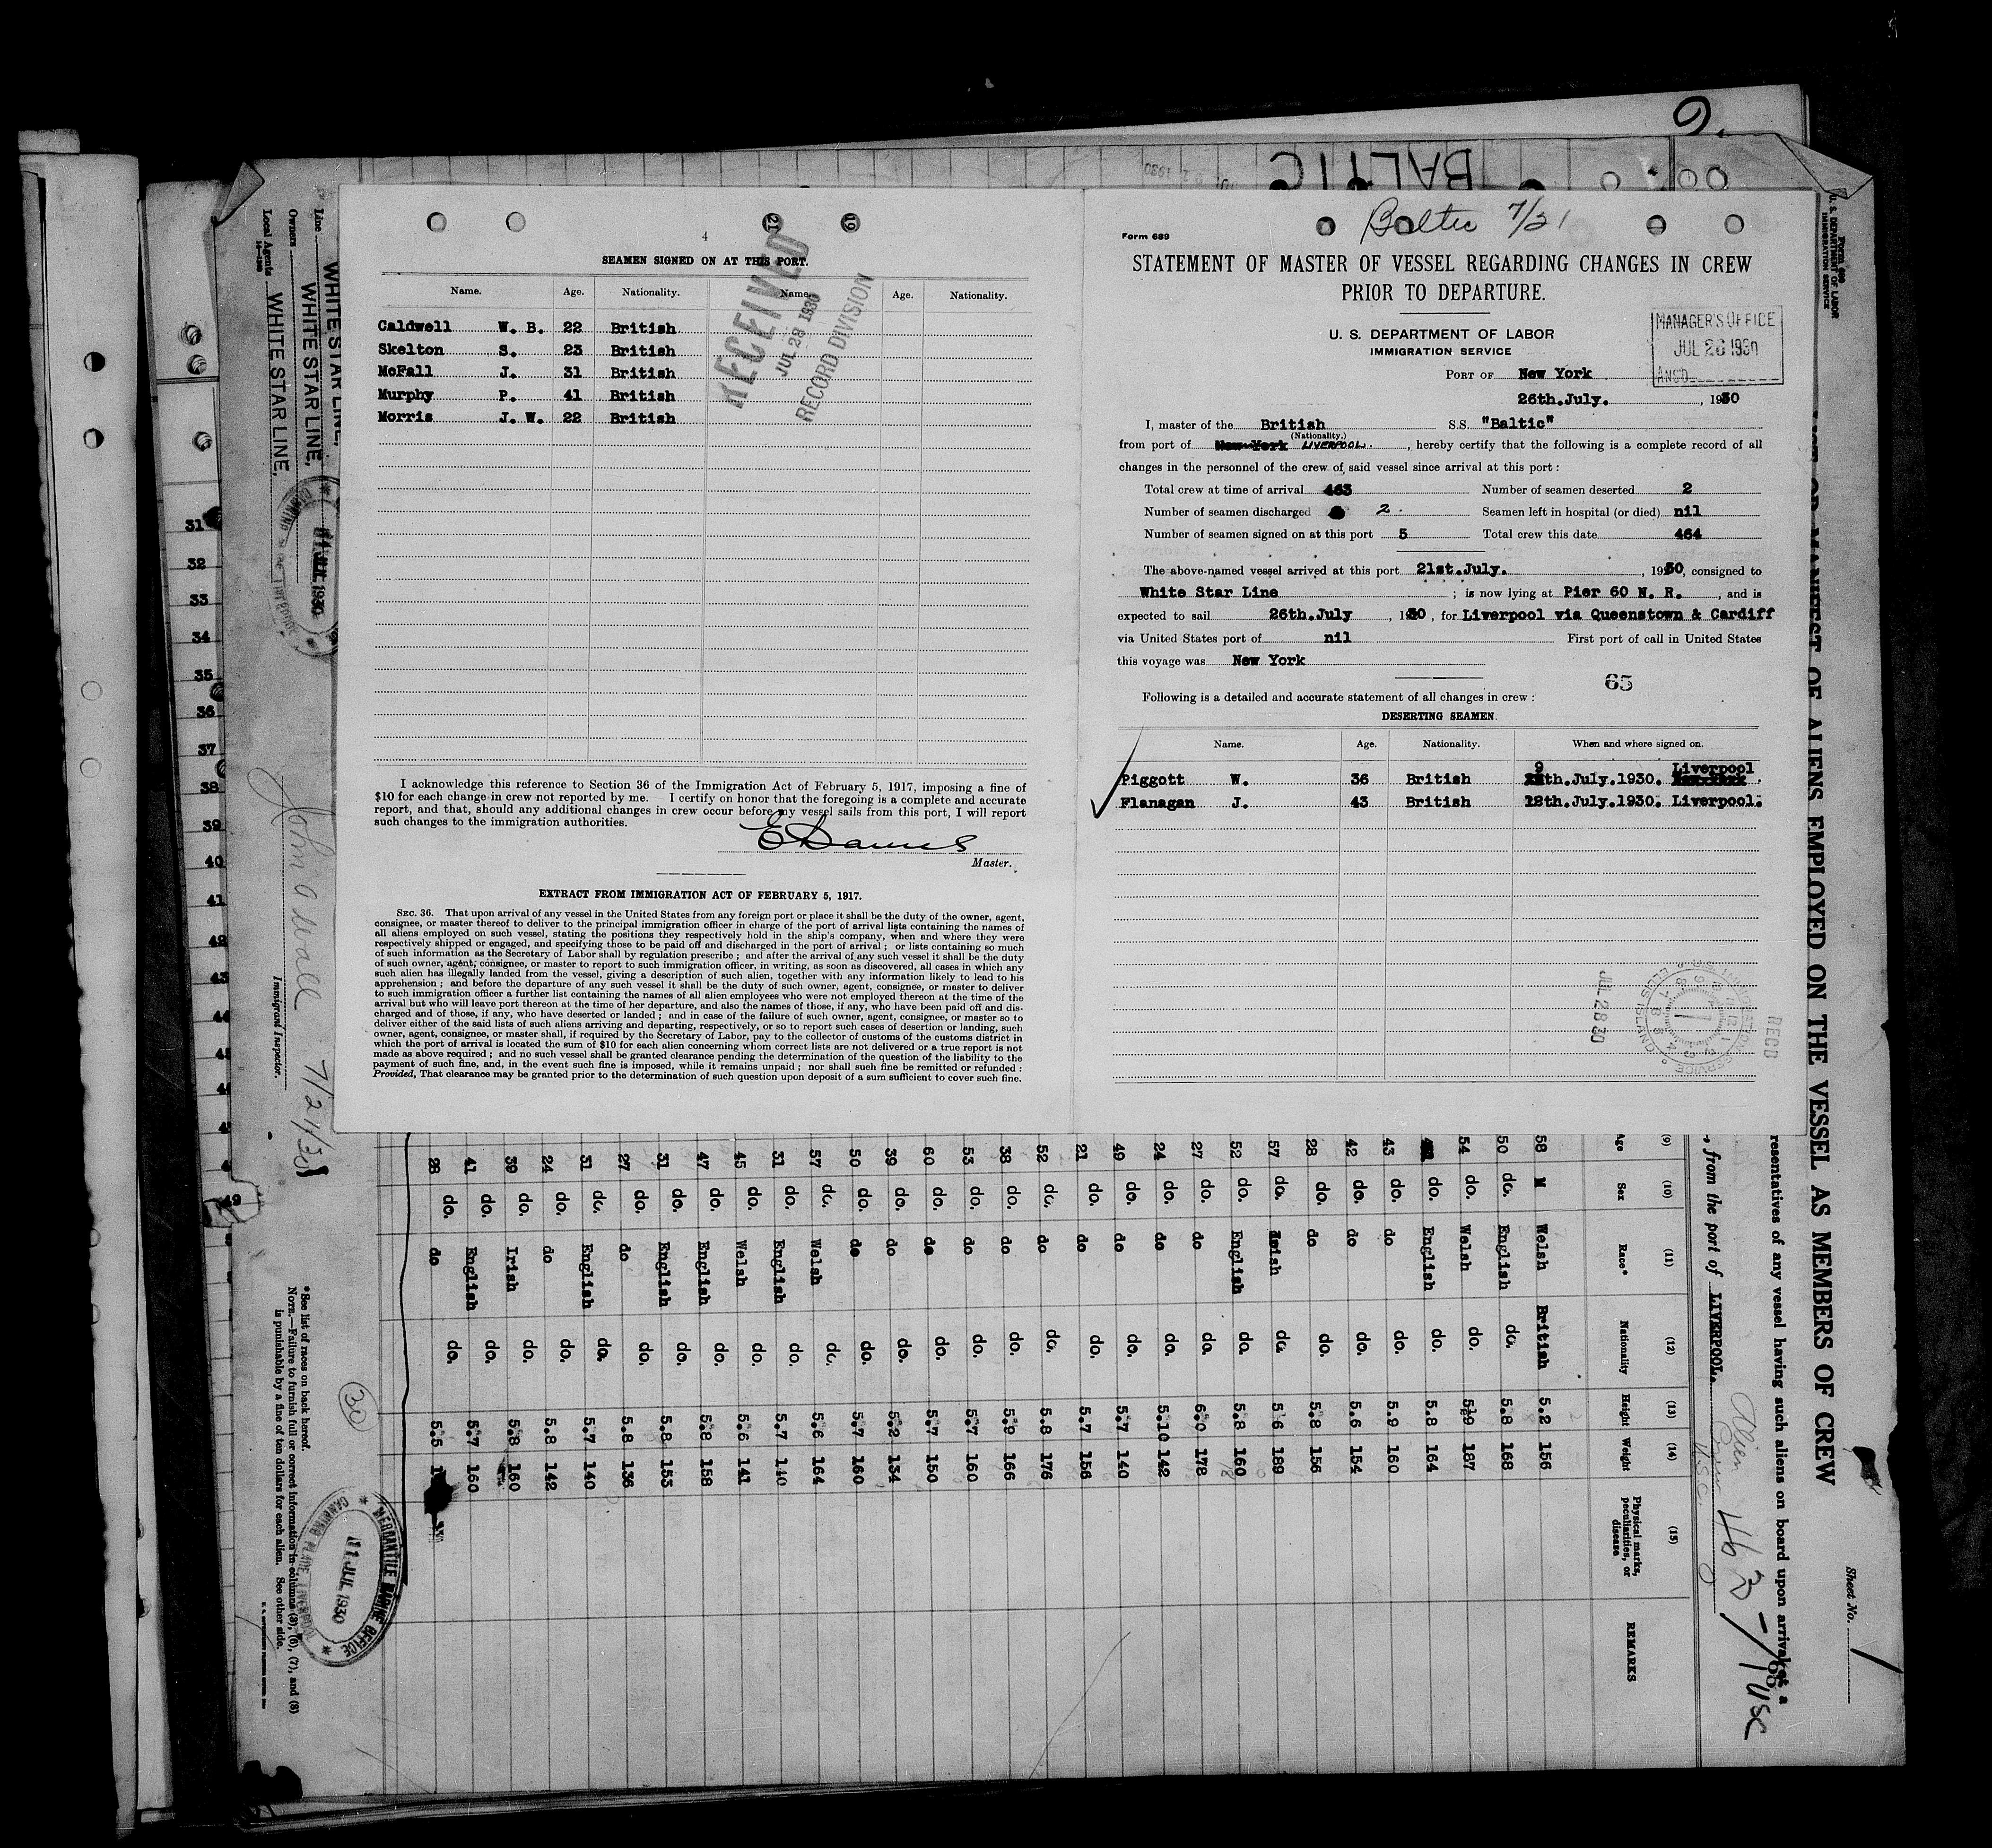 9.
BALTIC
4
SEAMEN SIGNED ON AT THIS PORT.
Name. Age. Nationality. Name. Age. Nationality.
Caldwell W. B. 22 British
Skelton S. 23 British
McFall J. 31 British
Murphy P. 41 British
Morris J. W. 22 British
RECEIVED
JUL 28 1930
RECORD DIVISION
I acknowledge this reference to Section 36 of the Immigration Act of February 5, 1917, imposing a fine of
$10 for each change in crew not reported by me. I certify on honor that the foregoing is a complete and accurate
report, and that, should any additional changes in crew occur before my vessel sails from this port, I will report
such changes to the immigration authorities.
Master.
EXTRACT FROM IMMIGRATION ACT OF FEBRUARY 5, 1917.
SEC. 36. That upon arrival of any vessel in the United States from any foreign port or place it shall be the duty of the owner, agent,
consignee, or master thereof to deliver to the principal immigration officer in charge of the port of arrival lists containing the names of
all aliens employed on such vessel, stating the positions they respectively hold in the ship's company, when and where they were
respectively shipped or engaged, and specifying those to be paid off and discharged in the port of arrival; or lists containing so much
of such information as the Secretary of Labor shall by regulation prescribe; and after the arrival of any such vessel it shall be the duty
of such owner, agent, consignee, or master to report to such immigration officer, in writing, as soon as discovered, all cases in which any
such alien has illegally landed from the vessel, giving a description of such alien, together with any information likely to lead to his
apprehension; and before the departure of any such vessel it shall be the duty of such owner, agent, consignee, or master to deliver
to such immigration officer a further list containing the names of all alien employees who were not employed thereon at the time of the
arrival but who will leave port thereon at the time of her departure, and also the names of those, if any, who have been paid off and dis-
charged and of those, if any, who have deserted or landed; and in case of the failure of such owner, agent, consignee, or master so to
deliver either of the said lists of such aliens arriving and departing, respectively, or so to report such cases of desertion or landing, such
owner, agent, consignee, or master shall, if required by the Secretary of Labor, pay to the collector of customs of the customs district in
which the port of arrival is located the sum of $10 for each alien concerning whom correct lists are not delivered or a true report is not
made as above required; and no such vessel shall be granted clearance pending the determination of the question of the liability to the
payment of such fine, and, in the event such fine is imposed, while it remains unpaid; nor shall such fine be remitted or refunded:
Provided, That clearance may be granted prior to the determination of such question upon deposit of a sum sufficient to cover such fine.
Baltic 7/21
Form 689
STATEMENT OF MASTER OF VESSEL REGARDING CHANGES IN CREW
PRIOR TO DEPARTURE.
U. S. DEPARTMENT OF LABOR
IMMIGRATION SERVICE
MANAGER'S OFFICE
JUL 26 1930
ANS'D
PORT OF New York
26th.July. , 1930
I, master of the British S.S. "Baltic"
(Nationality.)
from port of New York LIVERPOOL. , hereby certify that the following is a complete record of all
changes in the personnel of the crew of said vessel since arrival at this port:
Total crew at time of arrival 463 Number of seamen deserted 2
Number of seamen discharged 2. Seamen left in hospital (or died) nil
Number of seamen signed on at this port 5 Total crew this date 464
The above-named vessel arrived at this port 21st.July. , 1930, consigned to
White Star Line ; is now lying at Pier 60 N. R. , and is
expected to sail 26th.July , 1930, for Liverpool via Queenstown & Cardiff
via United States port of nil First port of call in United States
this voyage was New York
65
Following is a detailed and accurate statement of all changes in crew:
DESERTING SEAMEN.
Name. Age. Nationality. When and where signed on.
Piggott W. 36 British 9th.July.1930. Liverpool
Flanagan J. 43 British 12th.July.1930. Liverpool.
JUL 28 30
RECD
Form 689
U. S. DEPARTMENT OF LABOR
IMMIGRATION SERVICE
MANIFEST OF ALIENS EMPLOYED ON THE VESSEL AS MEMBERS OF CREW
Sheet No. 1
resentatives of any vessel having such aliens on board upon arrival at a
, from the port of LIVERPOOL.
Alien 463
(9) (10) (11) (12) (13) (14) (15)
Age Sex Race* Nationality Height Weight Physical marks, peculiarities, or disease REMARKS
58 M Welsh British 5.2 156
50 do. English do. 5.8 168
54 do. Welsh do. 5.9 187
do. English do. 5.8 164
43 do. do do. 5.9 160
42 do. do do. 5.6 154
28 do. do do. 5.8 156
57 do. Irish do 5.6 189
52 do. English do. 5.8 160
27 do. do do. 6.0 178
24 do. do do. 5.10 142
49 do. do do. 5.7 140
21 do. do do. 5.7 156
52 do. do do. 5.8 176
38 do. do do. 5.9 166
53 do. do do. 5.7 160
60 do. do do. 5.7 150
39 do. do do. 5.2 134
50 do. do do. 5.7 160
57 do. Welsh do. 5.6 164
31 do. English do. 5.7 140
45 do. Welsh do. 5.6 141
47 do. English do. 5.8 158
31 do. English do. 5.8 153
27 do. do do. 5.8 136
31 do. English do. 5.7 140
24 do. do do. 5.8 142
39 do. Irish do. 5.8 160
41 do. English do. 5.7 160
28 do. do do. 5.5
30
Line WHITE STAR LINE,
Owners WHITE STAR LINE,
Local Agents WHITE STAR LINE,
John A Wall 7/21/30
Immigrant Inspector.
*See list of races on back hereof.
NOTE.—Failure to furnish full or correct information in columns (3), (6), (7), and (8)
is punishable by a fine of ten dollars for each alien. See other side.
MERCANTILE MARINE OFFICE
11 JUL 1930
CANNING PLACE LIVERPOOL
11 JUL 1930
31
32
33
34
35
36
37
38
39
40
41
42
43
44
49